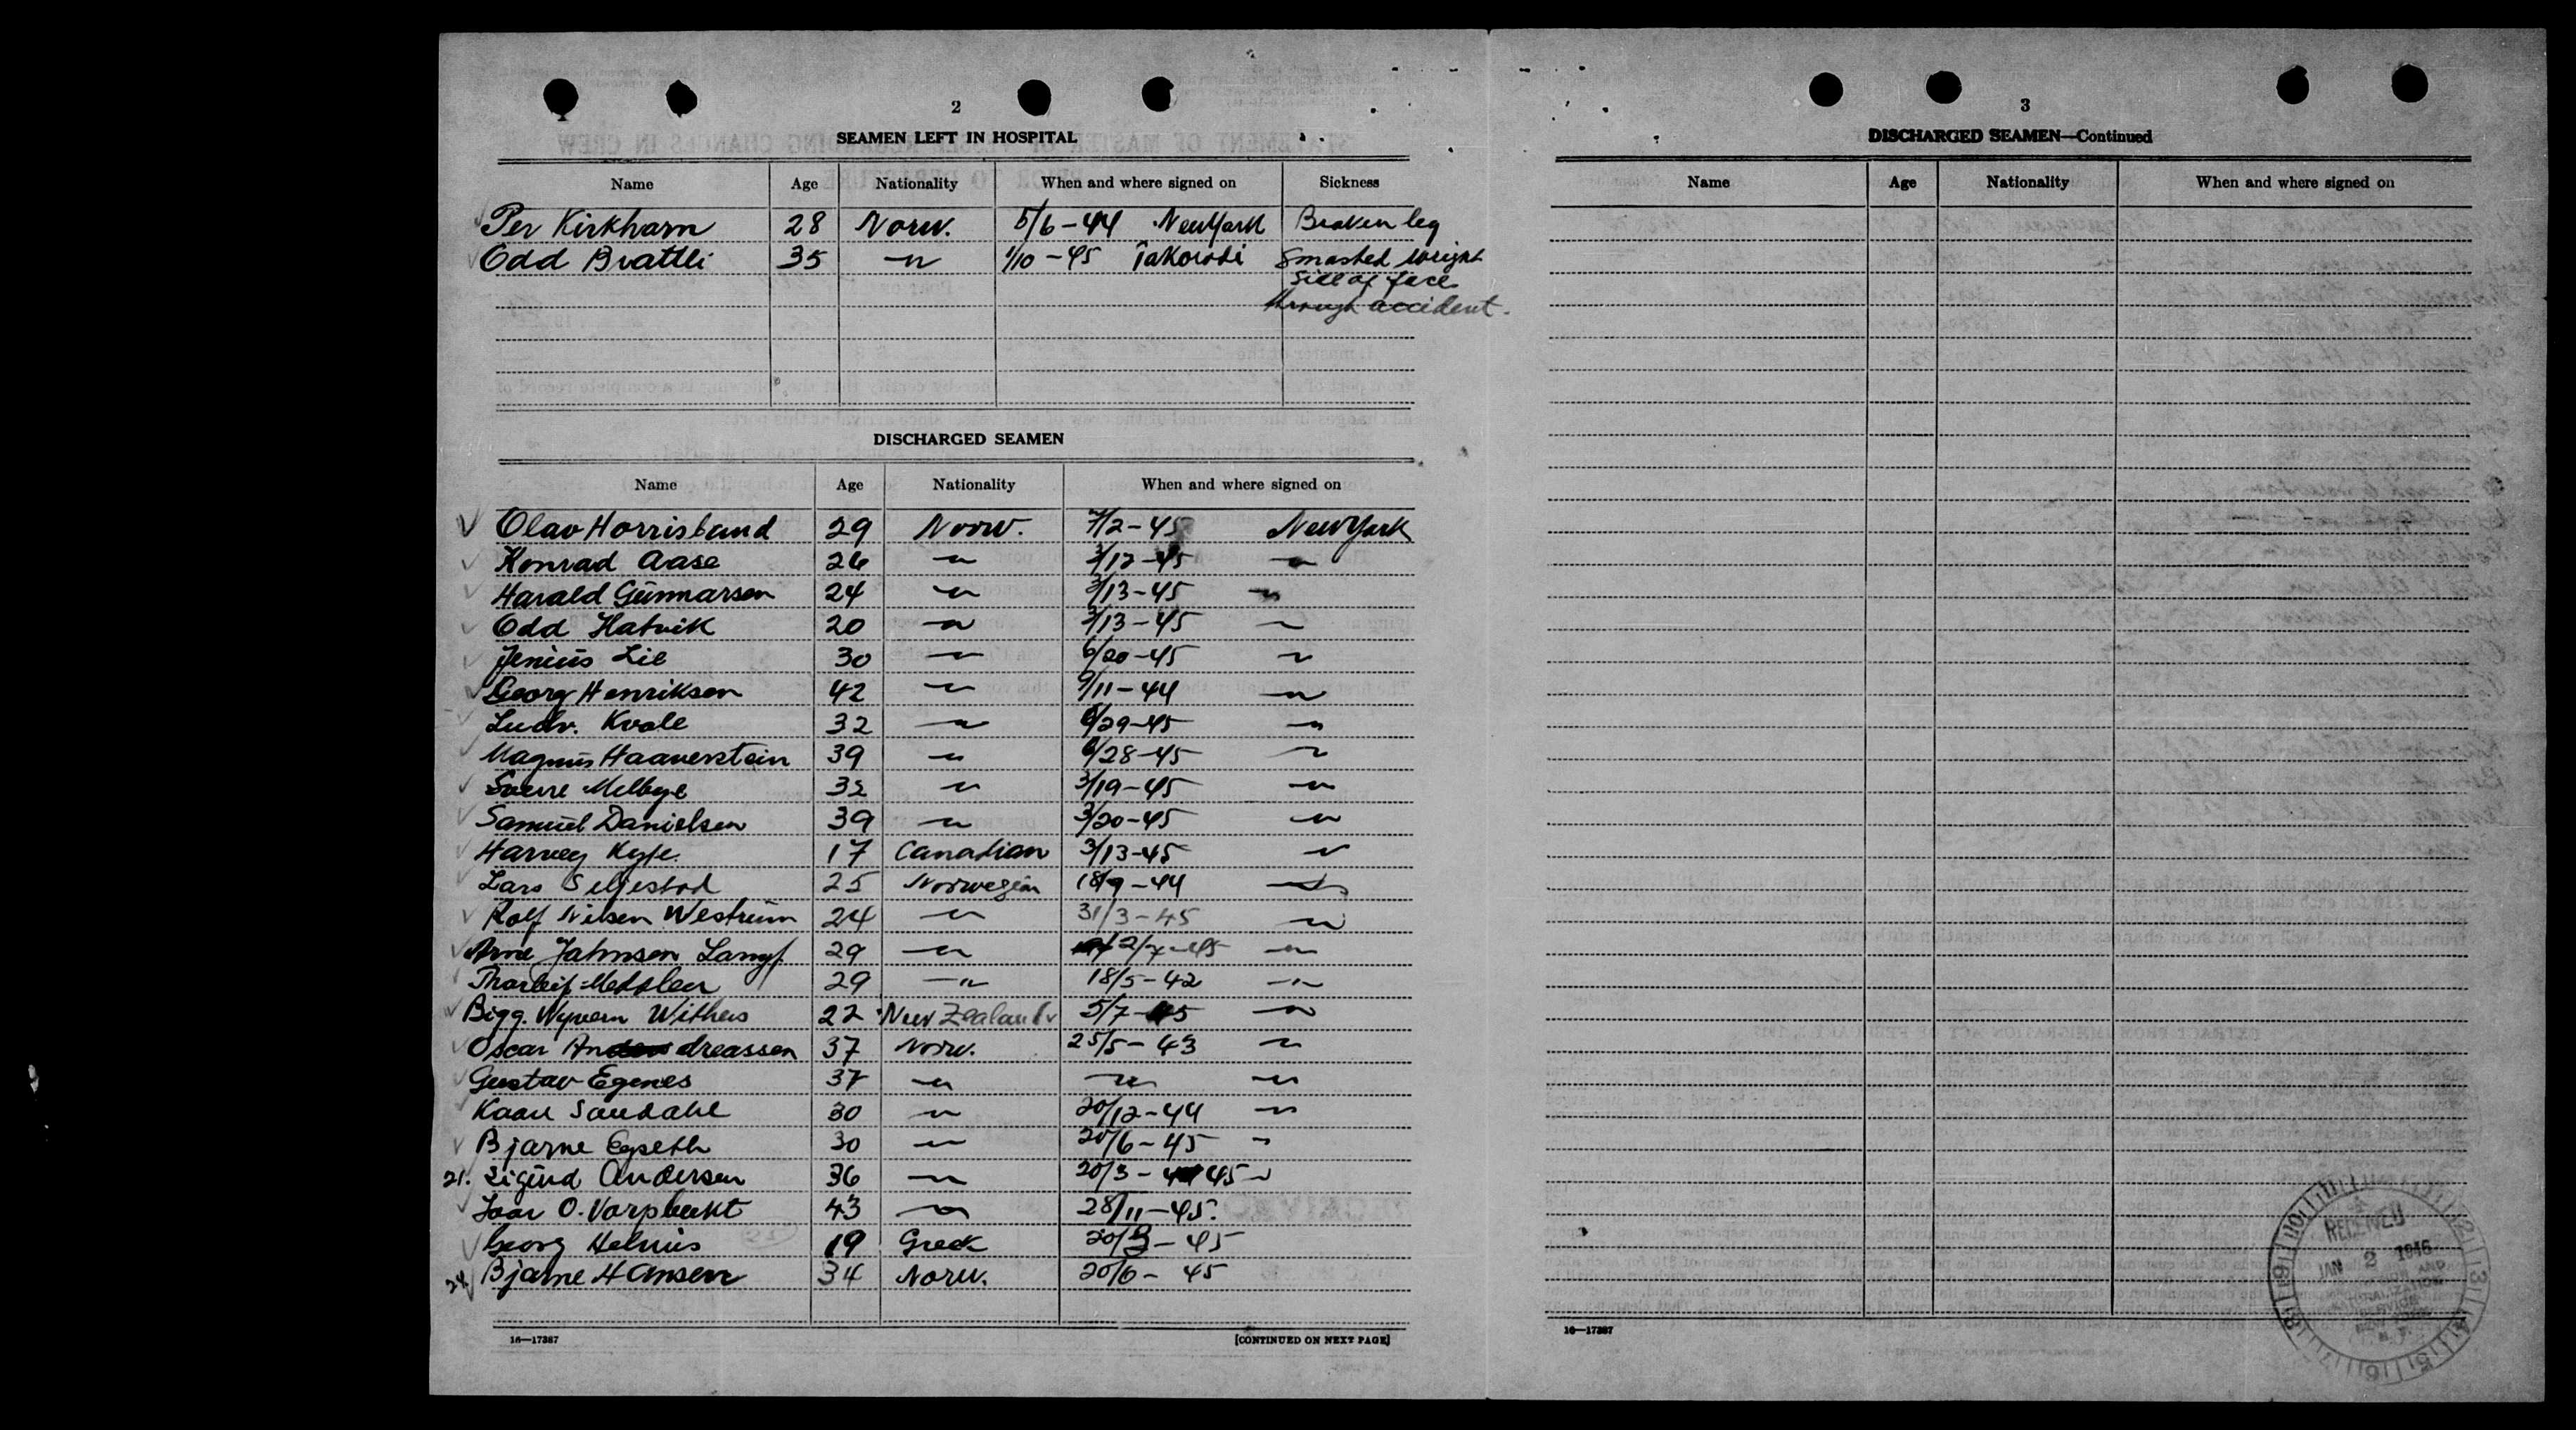 2
SEAMEN LEFT IN HOSPITAL
Name Age Nationality When and where signed on Sickness
Per Kirkham 28 Norw. 5/6-44 New York Broken leg
Odd Brattli 35 -"- 1/10-45 Takoradi Smashed wright
side of face
through accident.
DISCHARGED SEAMEN
Name Age Nationality When and where signed on
Olav Horrisland 29 Norw. 7/2-45 New York
Konrad Aase 26 -"- 3/12-45 -"-
Harald Gunnarsen 24 -"- 3/13-45 -"-
Odd Hatvik 20 -"- 3/13-45 -"-
Jenius Lie 30 -"- 6/20-45 -"-
Georg Henriksen 42 -"- 9/11-44 -"-
Ludv. Kvale 32 -"- 6/29-45 -"-
Magnus Haaverstein 39 -"- 6/28-45 -"-
Sverre Melbye 32 -"- 3/19-45 -"-
Samuel Danielsen 39 -"- 3/20-45 -"-
Harvey Kyle. 17 Canadian 3/13-45 -"-
Lars Seljestad 25 Norwegian 18/9-44 -"-
Rolf Nilsen Westrum 24 -"- 31/3-45 -"-
Arne Jahnsen 29 -"- 2/7-45 -"-
Thorleif 29 -"- 18/5-42 -"-
Bigg. Wyvern Withers 22 New Zealand 5/7-45 -"-
Oscar Andreassen 37 Norw. 25/5-43 -"-
Gustav Egenes 37 -"- -"- -"-
Kaare Sandahl 30 -"- 20/12-44 -"-
Bjarne Egseth 30 -"- 20/6-45 -"-
21. Sigurd Andersen 36 -"- 20/3-45 -"-
O. 43 -"- 28/11-45.
Georg Helmis 19 Greek 20/3-45
24 Bjarne Hansen 34 Norw. 20/6-45
16—17387 [CONTINUED ON NEXT PAGE]
3
DISCHARGED SEAMEN—Continued
Name Age Nationality When and where signed on
RECEIVED
JAN 2 1946
16—17387